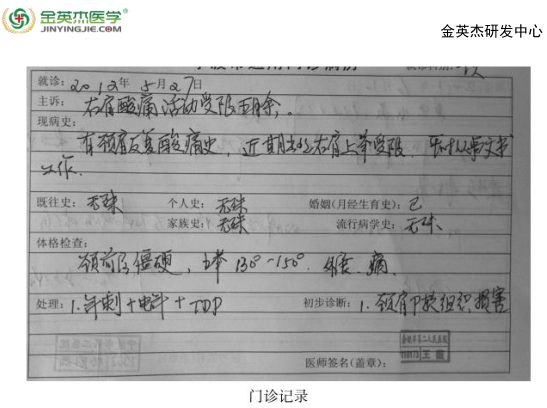 金英杰医学®
JINYINGJIE.COM
金英杰研发中心
就诊：2012年5月27日
主诉：
右肩酸痛活动受限五月余。
现病史：
有颈肩反复酸痛史，近期出现右肩上举受限．
工作．
既往史：无殊 个人史：无殊 婚姻(月经生育史)：已
家族史：无殊 流行病学史：无殊
体格检查：
颈前屈僵硬，上举130°-150°．痛．
处理：1.针刺+电针+TDP 初步诊断：1.颈肩部软组织损害
医师签名(盖章)：
门诊记录